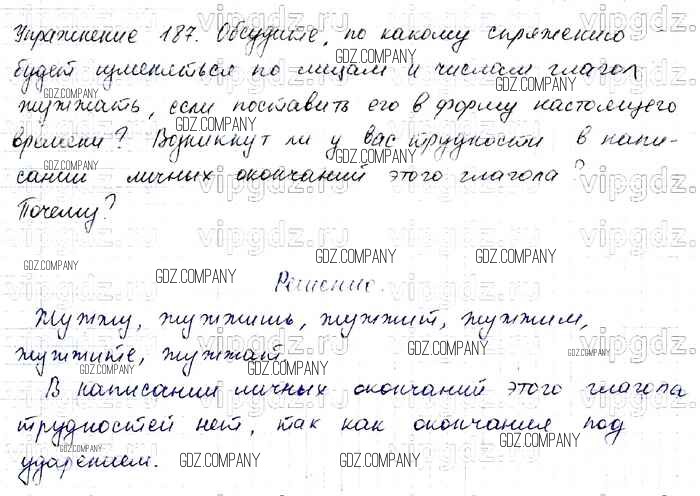 Упражнение 187. Обсудите, по какому спряжению
будет изменяться по лицам и числам глагол
жужжать, если поставить его в форму настоящего
времени? Возникнут ли у вас трудности в напи-
сании личных окончаний этого глагола?
Почему?
Решение.
Жужжу, жужжишь, жужжит, жужжим,
жужжите, жужжат.
В написании личных окончаний этого глагола
трудностей нет, так как окончания под
ударением.
vipgdz.ru
GDZ.COMPANY